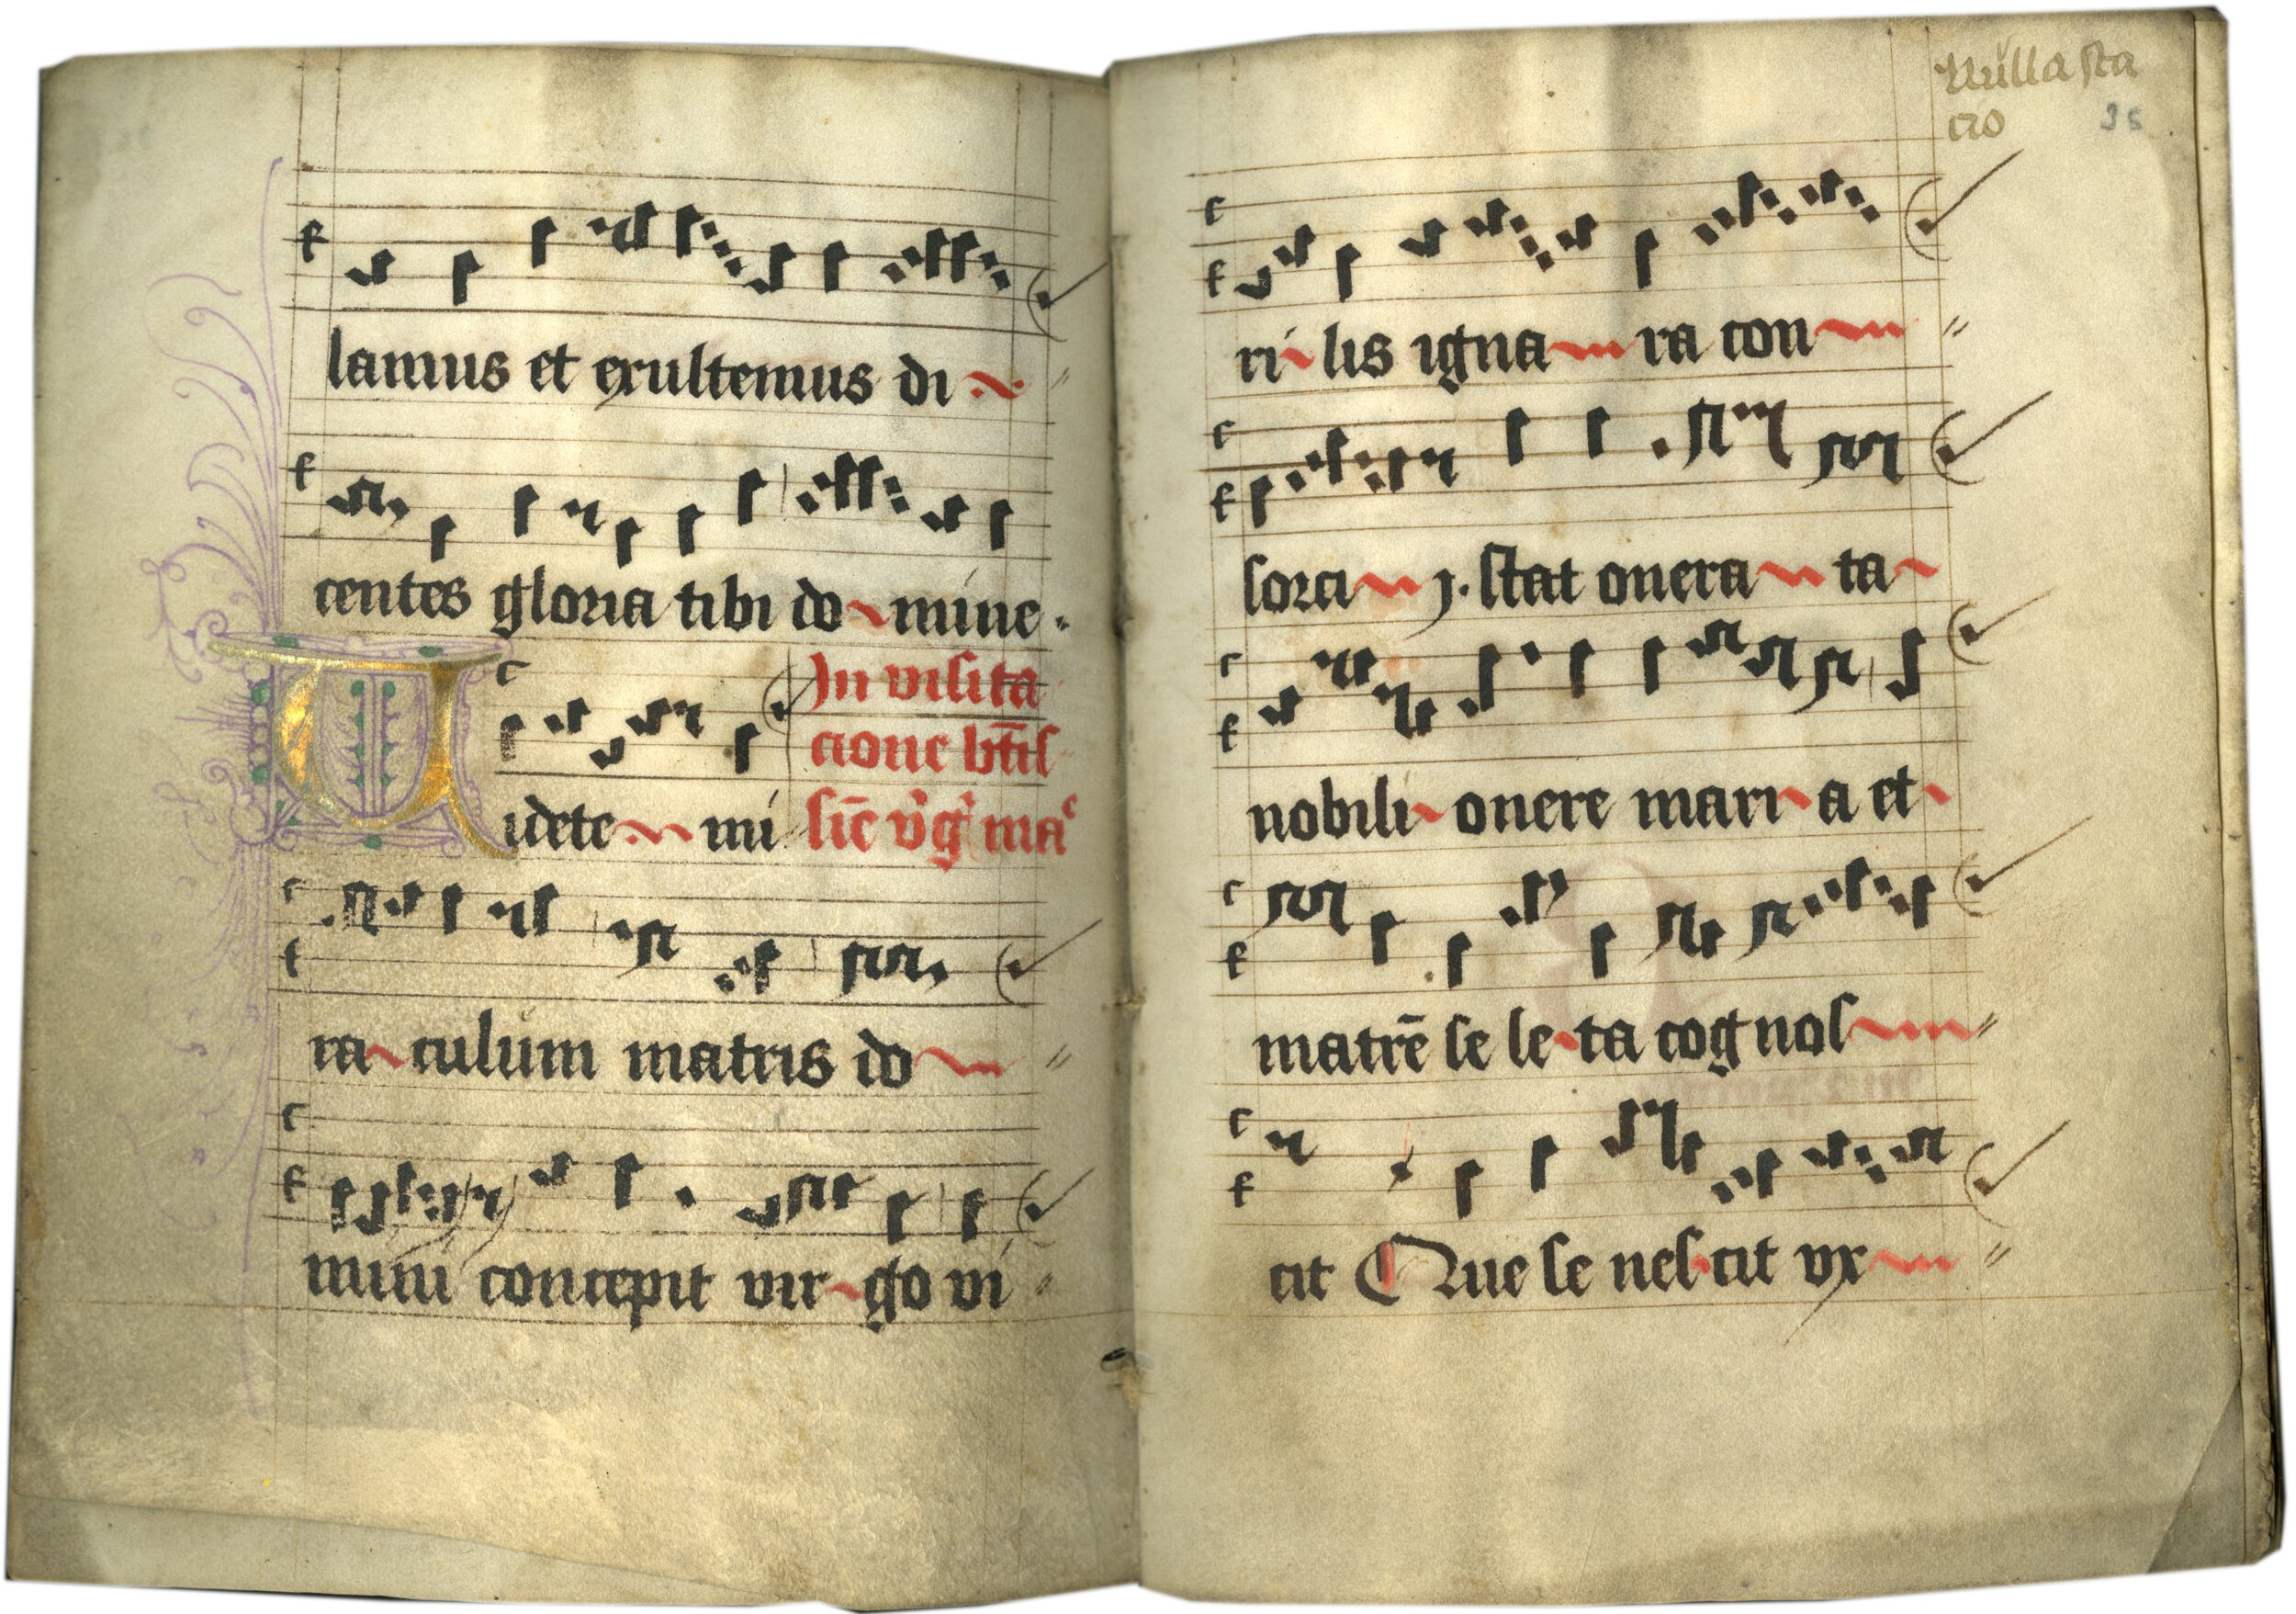 lamus et exultemus di
centes gloria tibi do mine.
In visita
cione btīs
Uidete mi sīe v̄gˢ maᶜ
ra culum matris do
mini concepit vir go vi
Nulla sta
cio
35
ri lis igna ra con
sorci j. stat onera ta
nobili onere mari a et
matrē se le ta cognos
cit Que se nescit vx